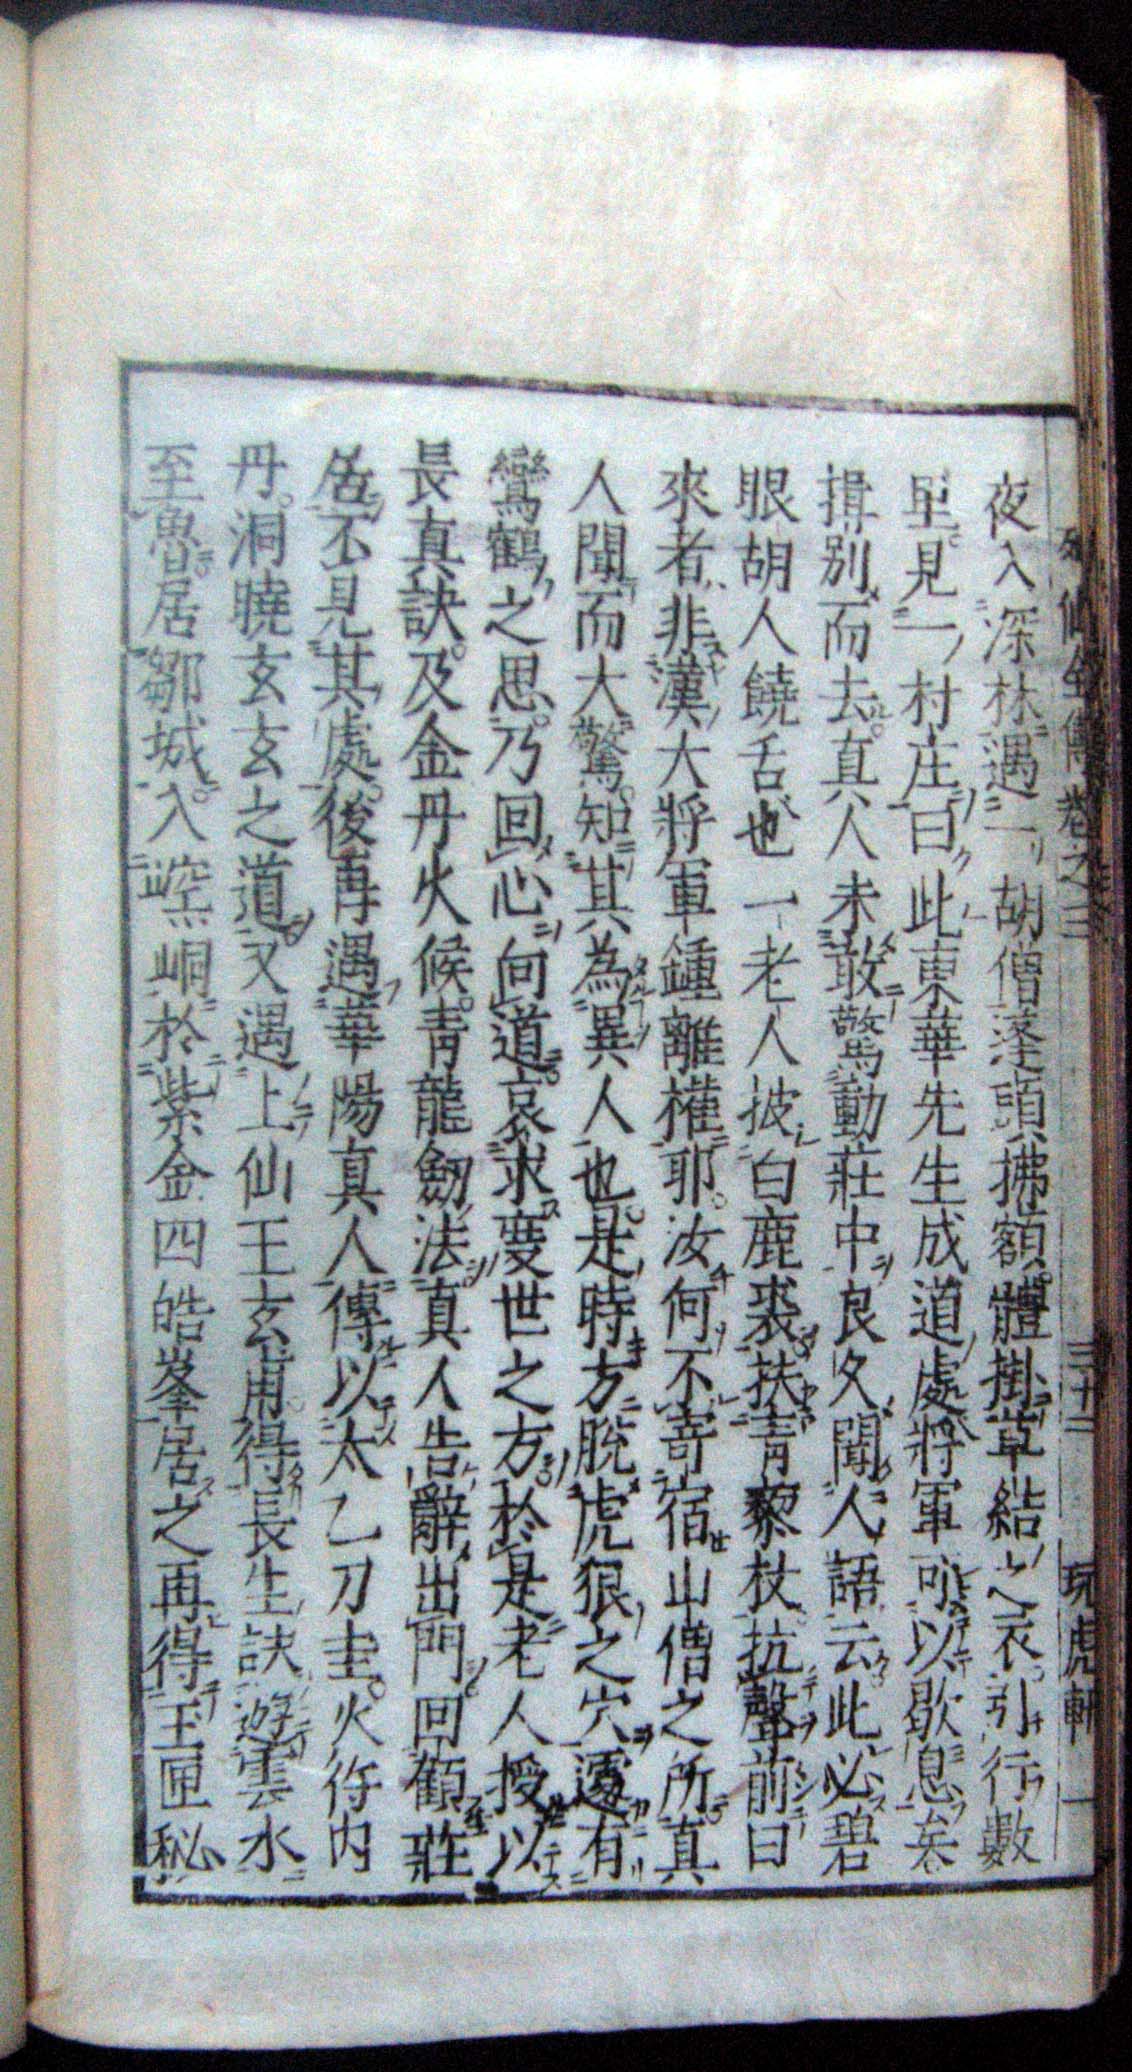 列仙全傳 卷之三 三十二 玩虎軒
夜入深林遇一胡僧蓬頭拂額體掛草結之衣引行數
里見一村庄曰此東華先生成道處將軍可以歇息矣
揖別而去真人未敢驚動莊中良久聞人語云此必碧
眼胡人饒舌也一老人披白鹿裘扶青藜杖抗聲前曰
來者非漢大將軍鍾離權耶汝何不寄宿山僧之所真
人聞而大驚知其為異人也是時方脫虎狼之穴遽有
鸞鶴之思乃回心向道哀求度世之方於是老人授以
長真訣及金丹火候青龍劒法真人告辭出門回顧莊
居不見其處後再遇華陽真人傳以太乙刀圭火符内
丹洞曉玄玄之道又遇上仙王玄甫得長生訣遊雲水
至魯居鄒城入崆峒於紫金四皓峯居之再得玉匣秘